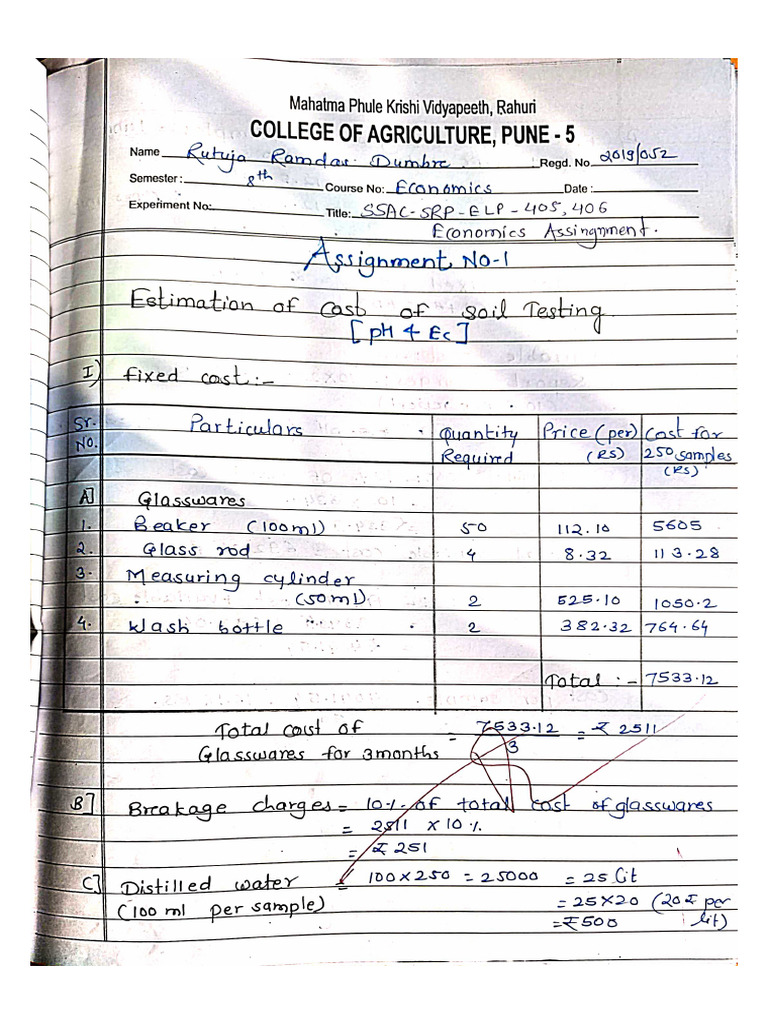 Mahatma Phule Krishi Vidyapeeth, Rahuri
COLLEGE OF AGRICULTURE, PUNE - 5
Name Rutuja Ramdas Dumbre. Regd. No. 2019/052
Semester : 8th Course No: Economics Date :
Experiment No: Title: SSAC-SRP-ELP-405, 406
Economics Assingnment.
Assignment No-1
Estimation of Cost of Soil Testing
[pH & Ec]
I) fixed cost :-
Sr. No. Particulars Quantity Required Price (per) (RS) Cost for 250 samples (RS)
A] Glasswares
1. Beaker (100ml) 50 112.10 5605
2. Glass rod 4 8.32 113.28
3. Measuring cylinder
(50ml) 2 525.10 1050.2
4. Wash bottle 2 382.32 764.64
Total :- 7533.12
Total cost of Glasswares for 3 months = 7533.12 / 3 = ₹ 2511
B] Breakage charges = 10% of total cost of glasswares
= 2511 × 10 %
= ₹ 251
C] Distilled water = 100×250 = 25000 = 25 lit
(100 ml per sample) = 25×20 (20₹ per lit)
= ₹500